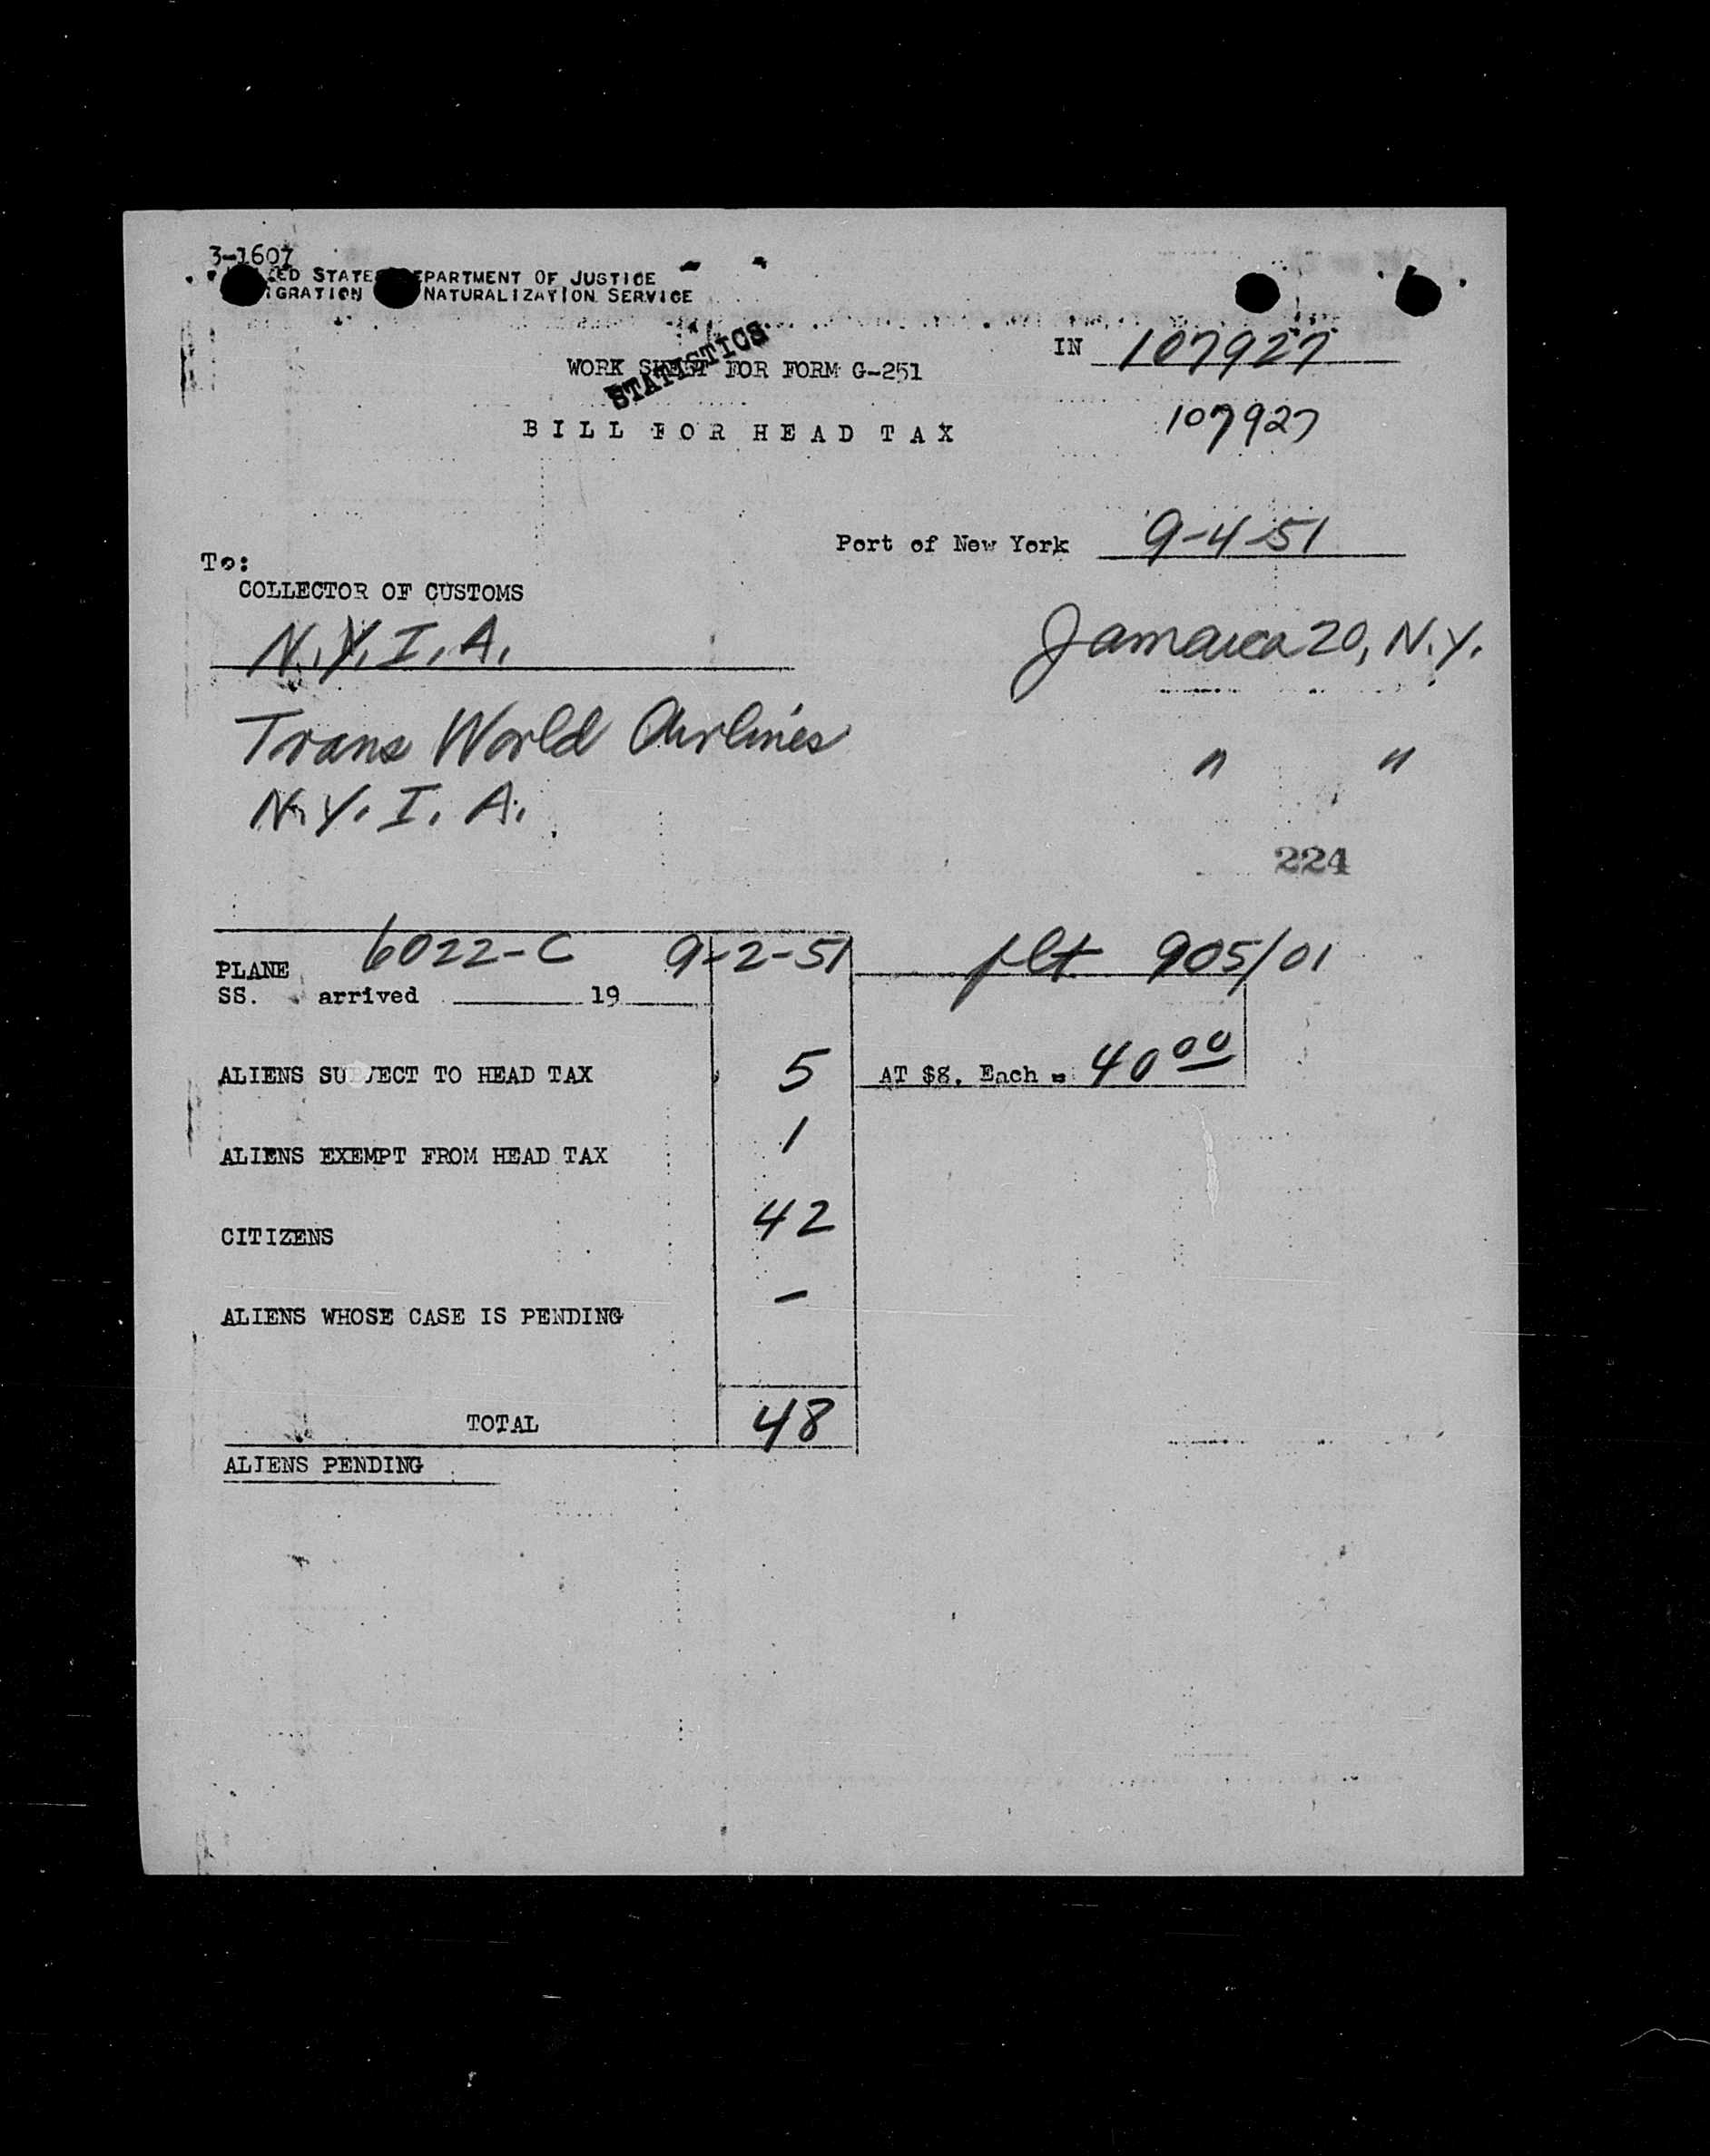 3-1607
ED STATE EPARTMENT OF JUSTICE
IGRATION NATURALIZATION SERVICE
IN 107927
STATISTICS
WORK SHEET FOR FORM G-251
107927
BILL FOR HEAD TAX
Port of New York 9-4-51
To:
COLLECTOR OF CUSTOMS
N.Y.I.A. Jamaica 20, N.Y.
Trans World Airlines " "
N.Y.I.A.
224
PLANE 6022-C 9-2-51 flt 905/01
SS. arrived 19
ALIENS SUBJECT TO HEAD TAX 5 AT $8. Each = 40 00
ALIENS EXEMPT FROM HEAD TAX 1
CITIZENS 42
ALIENS WHOSE CASE IS PENDING -
TOTAL 48
ALIENS PENDING